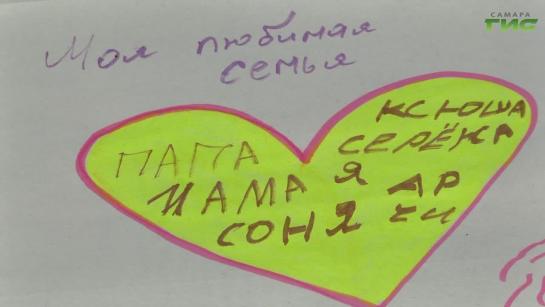 САМАРА
ГИС
Моя любимая
семья
КСЮША
ПАПА СЕРЁКА
МАМА Я АР
СОНЯ ЧИ